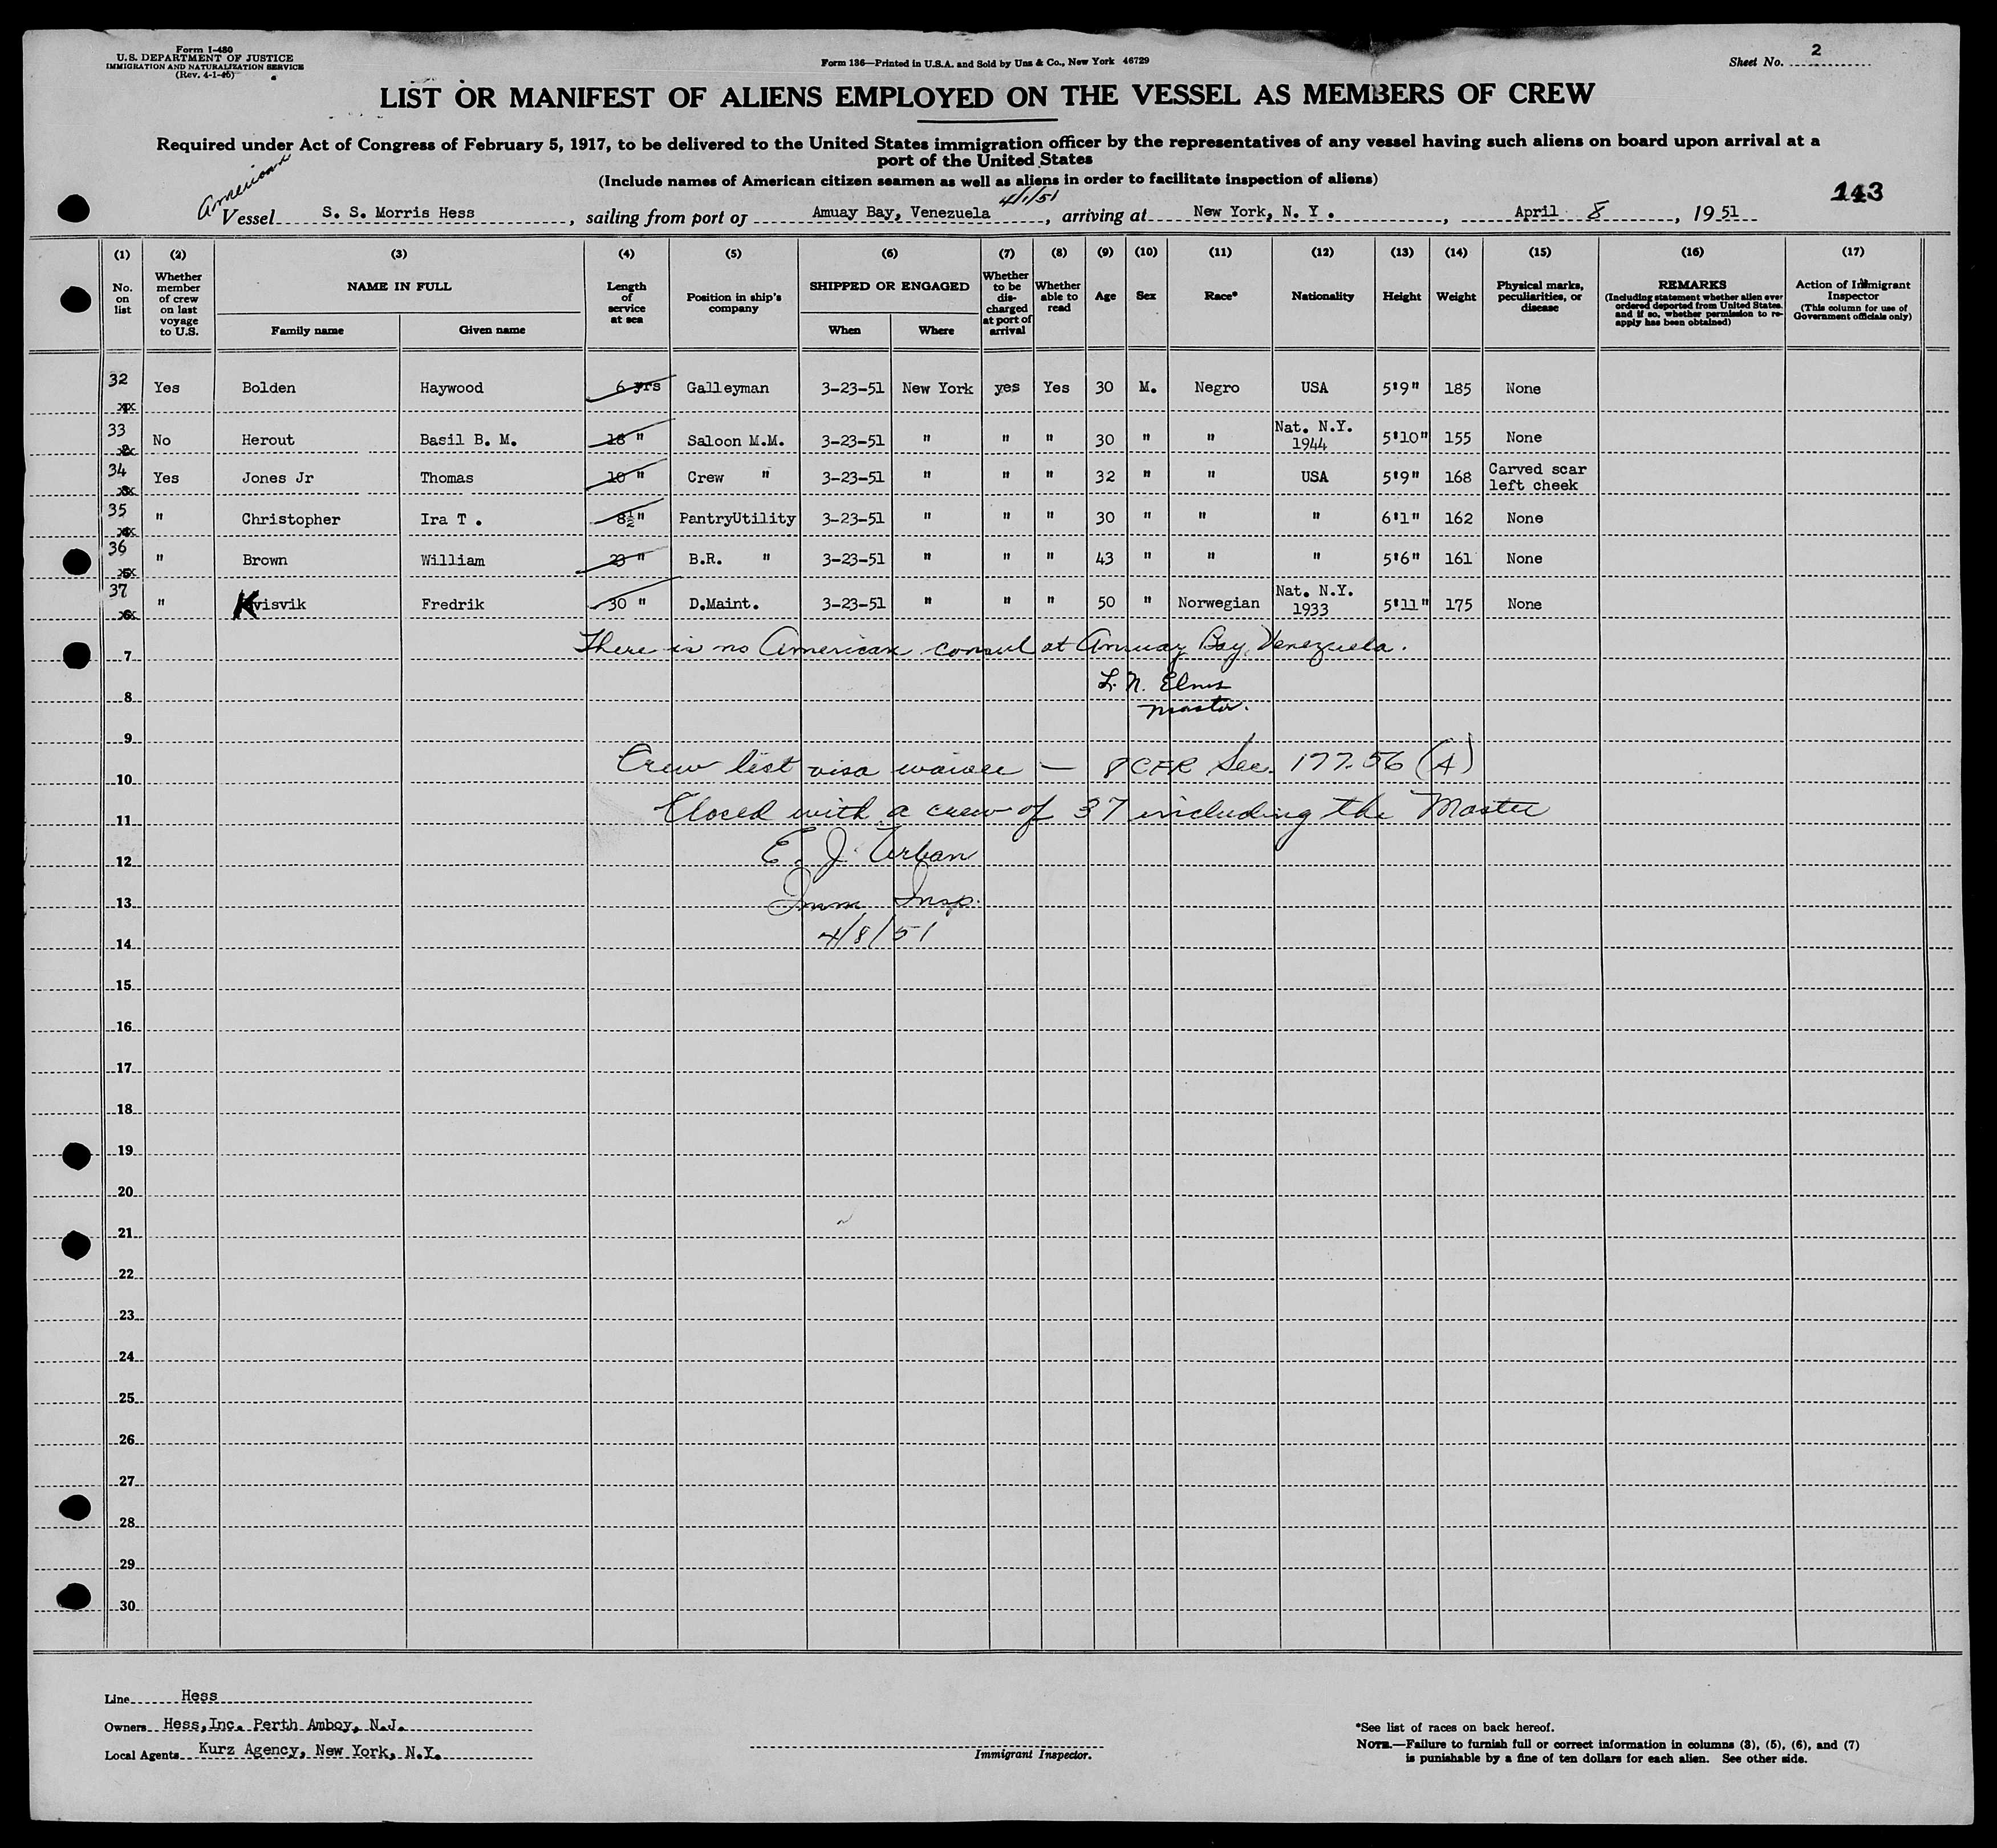 Form I-480
U.S. DEPARTMENT OF JUSTICE
IMMIGRATION AND NATURALIZATION SERVICE
(Rev. 4-1-45)
Form 136—Printed in U.S.A. and Sold by Unz & Co., New York 46729
Sheet No. 2
LIST OR MANIFEST OF ALIENS EMPLOYED ON THE VESSEL AS MEMBERS OF CREW
Required under Act of Congress of February 5, 1917, to be delivered to the United States immigration officer by the representatives of any vessel having such aliens on board upon arrival at a
port of the United States
(Include names of American citizen seamen as well as aliens in order to facilitate inspection of aliens)
143
American
4/1/51
Vessel S. S. Morris Hess, sailing from port of Amuay Bay, Venezuela, arriving at New York, N. Y., April 8, 1951
(1) (2) (3) (4) (5) (6) (7) (8) (9) (10) (11) (12) (13) (14) (15) (16) (17)
No. on list
Whether member of crew on last voyage to U.S.
NAME IN FULL
Family name
Given name
Length of service at sea
Position in ship's company
SHIPPED OR ENGAGED
When
Where
Whether to be discharged at port of arrival
Whether able to read
Age
Sex
Race*
Nationality
Height
Weight
Physical marks, peculiarities, or disease
REMARKS
(Including statement whether alien ever ordered deported from United States, and if so, whether permission to re-apply has been obtained)
Action of Immigrant Inspector
(This column for use of Government officials only)
32 Yes Bolden Haywood 6 yrs Galleyman 3-23-51 New York yes Yes 30 M. Negro USA 5'9" 185 None
33 No Herout Basil B. M. 18 " Saloon M.M. 3-23-51 " " " 30 " " Nat. N.Y. 1944 5'10" 155 None
34 Yes Jones Jr Thomas 10 " Crew " 3-23-51 " " " 32 " " USA 5'9" 168 Carved scar left cheek
35 " Christopher Ira T. 8½ " PantryUtility 3-23-51 " " " 30 " " " 6'1" 162 None
36 " Brown William 23 " B.R. " 3-23-51 " " " 43 " " " 5'6" 161 None
37 " Kvisvik Fredrik 30 " D.Maint. 3-23-51 " " " 50 " Norwegian Nat. N.Y. 1933 5'11" 175 None
There is no American consul at Amuay Bay, Venezuela.
7
L. N. Elms
8
Master.
9
Crew list visa waiver — 8 CFR Sec. 177.56 (A)
10
Closed with a crew of 37 including the Master
11
E. J. Urban
12
Imm. Insp.
13
4/8/51
14
15
16
17
18
19
20
21
22
23
24
25
26
27
28
29
30
Line Hess
Owners Hess, Inc. Perth Amboy, N.J.
Local Agents Kurz Agency, New York, N.Y.
Immigrant Inspector.
*See list of races on back hereof.
NOTE.—Failure to furnish full or correct information in columns (3), (5), (6), and (7)
is punishable by a fine of ten dollars for each alien. See other side.